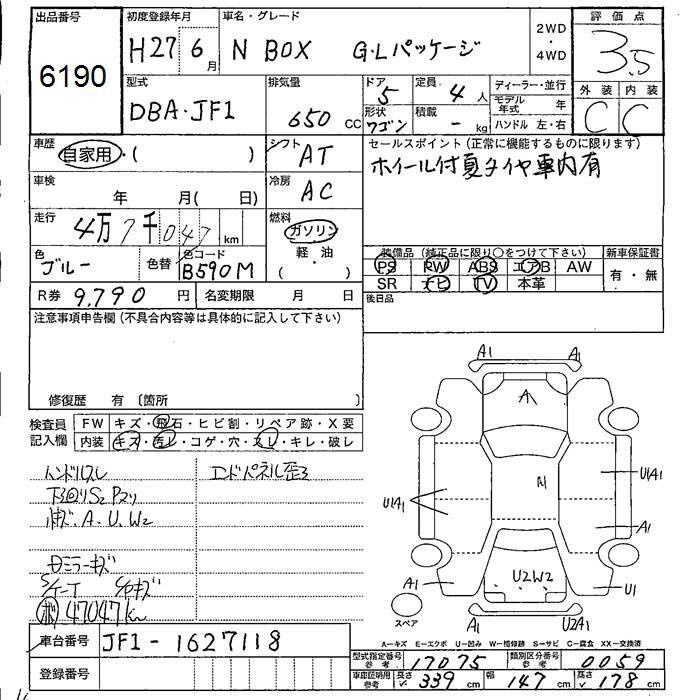 出品番号
6190
初度登録年月
H27 6月
車名・グレード
N BOX G・Lパッケージ
2WD
・
4WD
評価点
3.5
外装 内装
C C
型式
DBA・JF1
排気量
650 CC
ドア
5
形状
ワゴン
定員
4人
積載
- kg
ディーラー・並行
モデル年式 年
ハンドル 左・右
車歴
自家用・( )
シフト
AT
セールスポイント (正常に機能するものに限ります)
ホイール付夏タイヤ車内有
車検
年 月( 日)
冷房
AC
走行
4万7千047 km
燃料
ガソリン
軽・油
( )
色
ブルー
色替
色コード
B590M
装備品 (純正品に限り○をつけて下さい)
新車保証書
PS PW ABS エアB AW
SR ナビ TV 本革
有・無
R券 9,790 円
名変期限 月 日
後日品
注意事項申告欄 (不具合内容等は具体的に記入して下さい)
修復歴 有 〔箇所 〕
検査員
記入欄
FW キズ・飛石・ヒビ割・リペア跡・X要
内装 キズ・汚レ・コゲ・穴・スレ・キレ・破レ
ハンドルスレ
エンドパネル歪ミ
下回りS2 Pスリ
A.U.W2
Dミラーキズ
47047km
A1 A1
A
U1A1
U1A1
A1
A1
U2W2
U1
スペア
A1
U2A1
A－キズ E－エクボ U－凹み W－補修跡 S－サビ C－腐食 XX－交換済
車台番号
JF1-1627118
登録番号
型式指定番号
参考
17075
類別区分番号
参考
0059
車庫証明用
参考
長さ
339 cm
幅
147 cm
高さ
178 cm